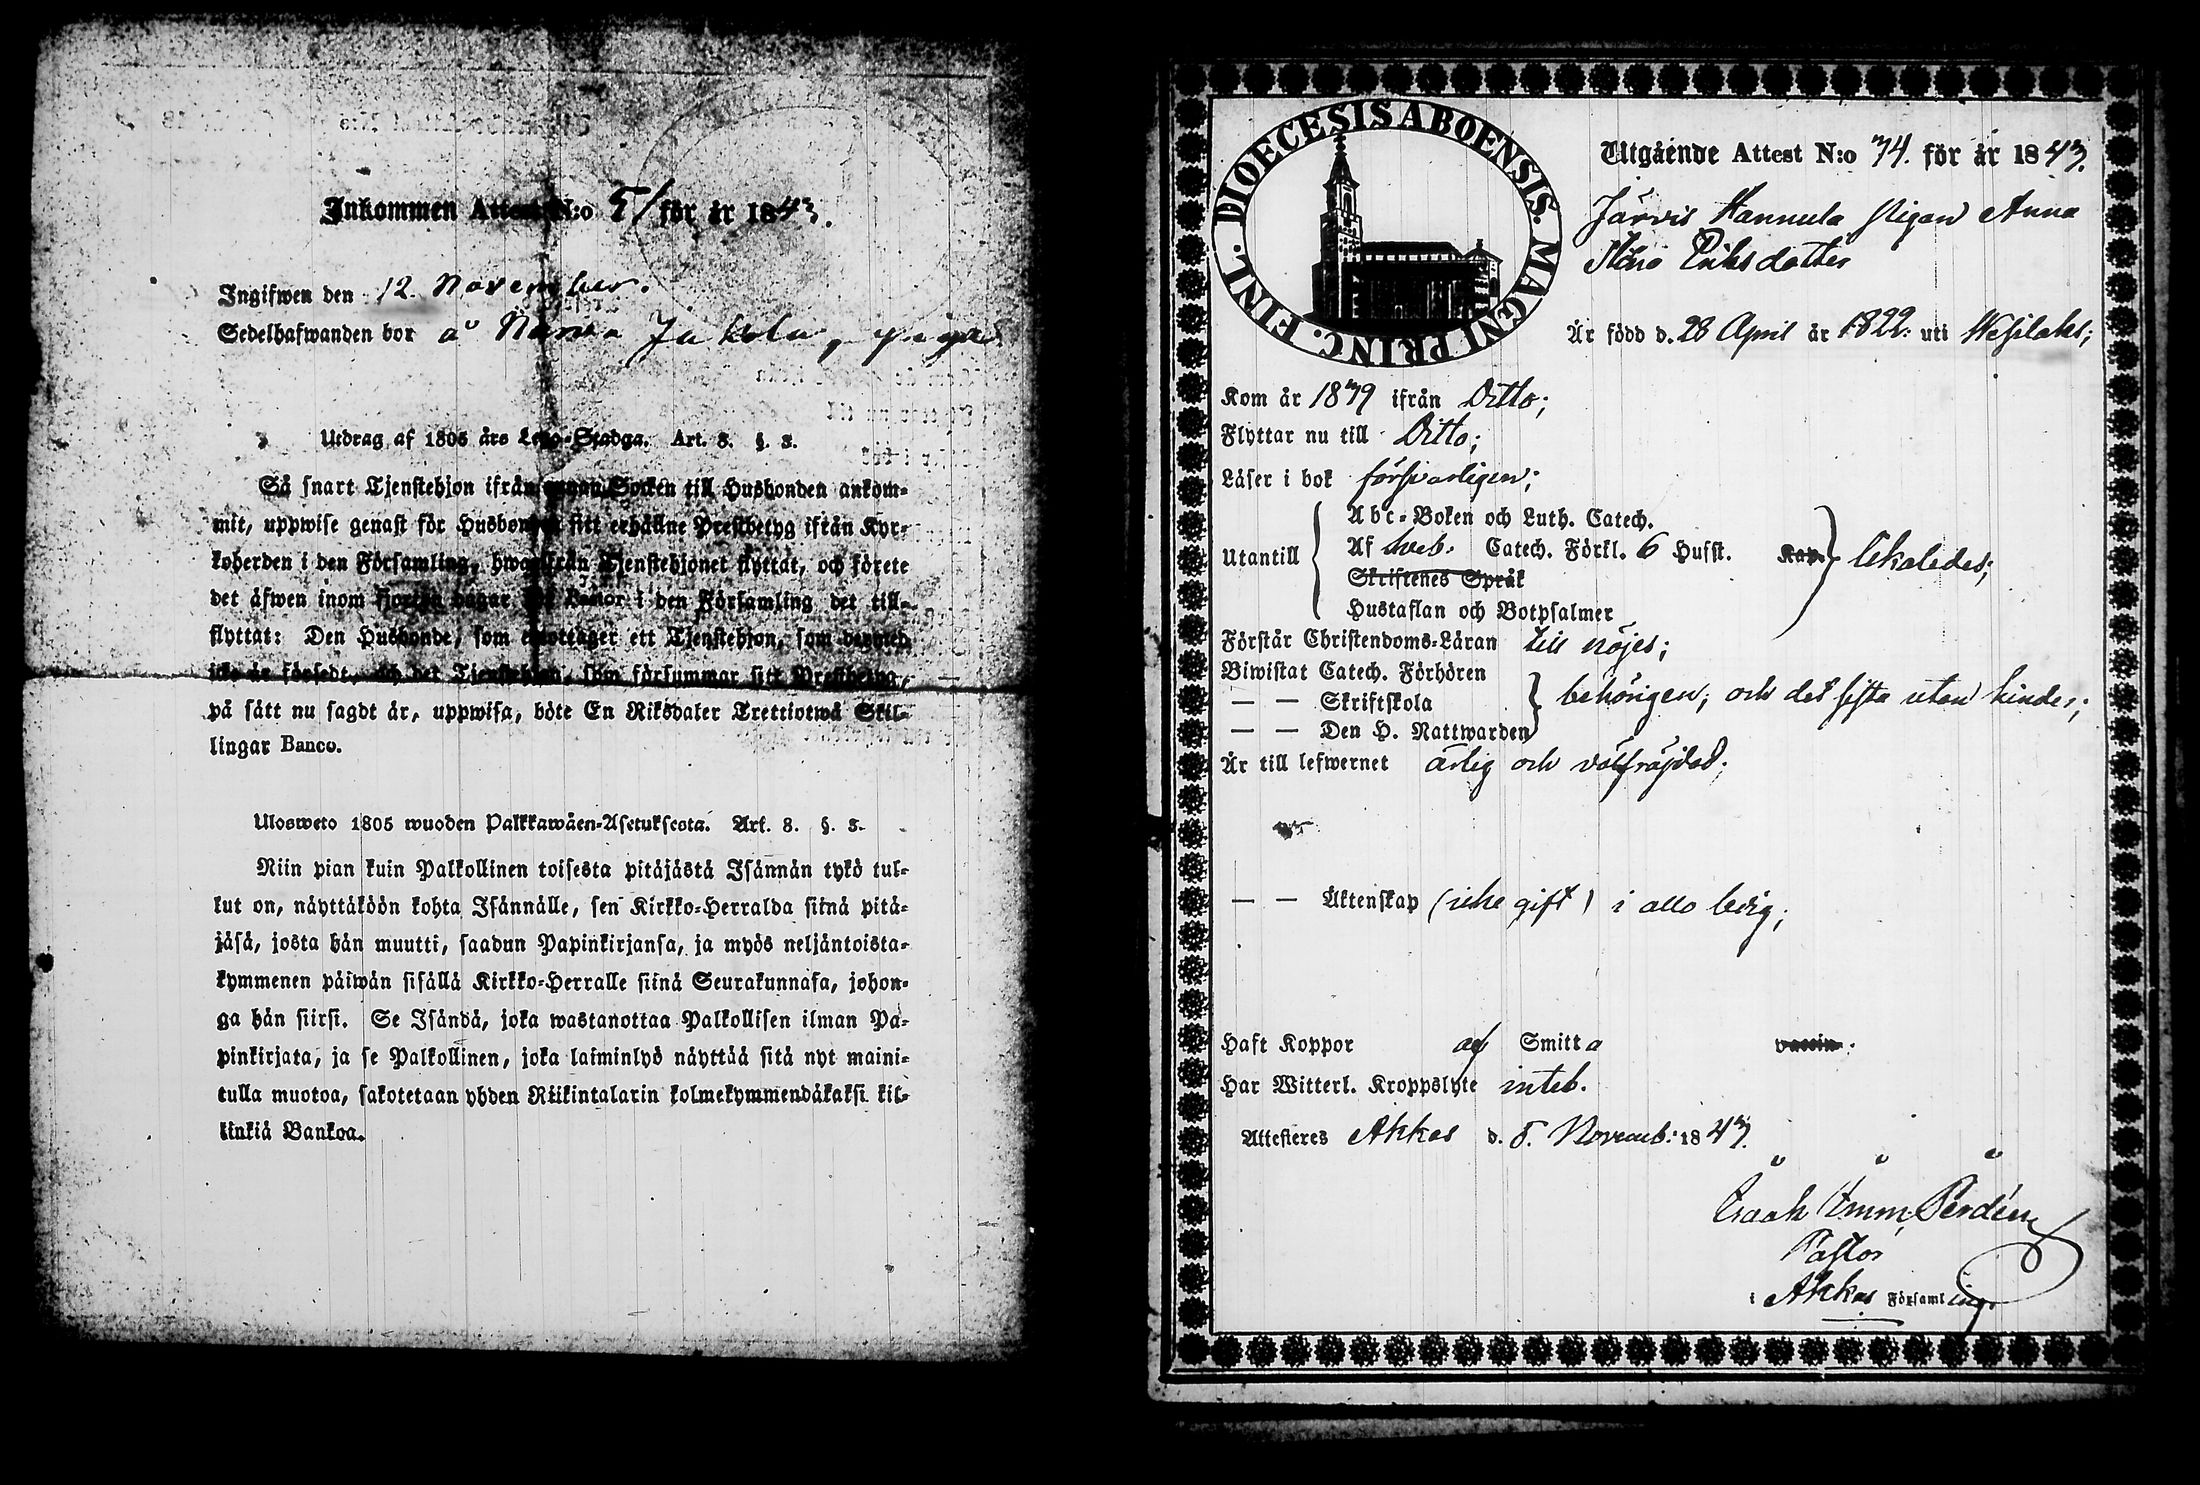 Inkommen Attest N:o 51 för år 1843.
Ingifwen den 12. November.
Sedelhafwanden bor å Narva Jakola, pigan
Utdrag af 1805 års Lego-Stadga. Art. 8. §. 3.
Så snart Tjenstehjon ifrån annan Socken till Husbonden ankom-
mit, uppwise genast för Husbonden sitt erhållne Prestbetyg ifrån Kyr-
koherden i den Församling, hwarifrån Tjenstehjonet flyttat, och förete
det äfwen inom fjorton dagar för Pastor i den Församling det till-
flyttat: Den Husbonde, som emottager ett Tjenstehjon, som dermed
icke är försedt, och det Tjenstehjon, som försummar sitt Prestbetyg,
på sätt nu sagdt är, uppwisa, böte En Riksdaler Trettiotwå Skil-
lingar Banco.
Ulosweto 1805 wuoden Palkkawäen-Asetuksesta. Art. 8. §. 3.
Niin pian kuin Palkollinen toisesta pitäjästä Isännän tykö tul-
lut on, näyttäköön kohta Isännälle, sen Kirkko-Herralda siinä pitä-
jäsä, josta hän muutti, saadun Papinkirjansa, ja myös neljäntoista-
kymmenen päiwän sisällä Kirkko-Herralle siinä Seurakunnasa, johon-
ga hän siirsi. Se Isändä, joka wastanottaa Palkollisen ilman Pa-
pinkirjata, ja se Palkollinen, joka laiminlyö näyttää sitä nyt maini-
tulla muotoa, sakotetaan yhden Riikintalarin kolmekymmendäkaksi kil-
linkiä Bankoa.
DIOECESIS ABOENSIS. MAGNI PRINC. FINL.
Utgående Attest N:o 74. för år 1843.
Järvis Hannula Pigan Anna
Stina Eriksdotter
Är född d. 28 April år 1822. uti Wesilaks;
Kom år 1839 ifrån Ditto;
Flyttar nu till Ditto;
Läser i bok försvarligen;
Abc-Boken och Luth. Catech.
Utantill Af Sveb. Catech. Förkl. 6 Husst. Kap. likaledes;
Skriftenes Språk
Hustaflan och Botpsalmer
Förstår Christendoms-Läran till nöjes;
Biwistat Catech. Förhören
— — Skriftskola behörigen, och det sista utan hinder;
— — Den H. Nattwarden
Är till lefwernet ärlig och välfräjdad;
— — Äktenskap (icke gift) i allo ledig;
Haft Koppor af Smitta vaccin.
Har Witterl. Kroppslyte intet.
Attesteres Akkas d. 8. Novemb: 1843.
Isaak Imm. Perdén
Pastor
i Akkas Församling.